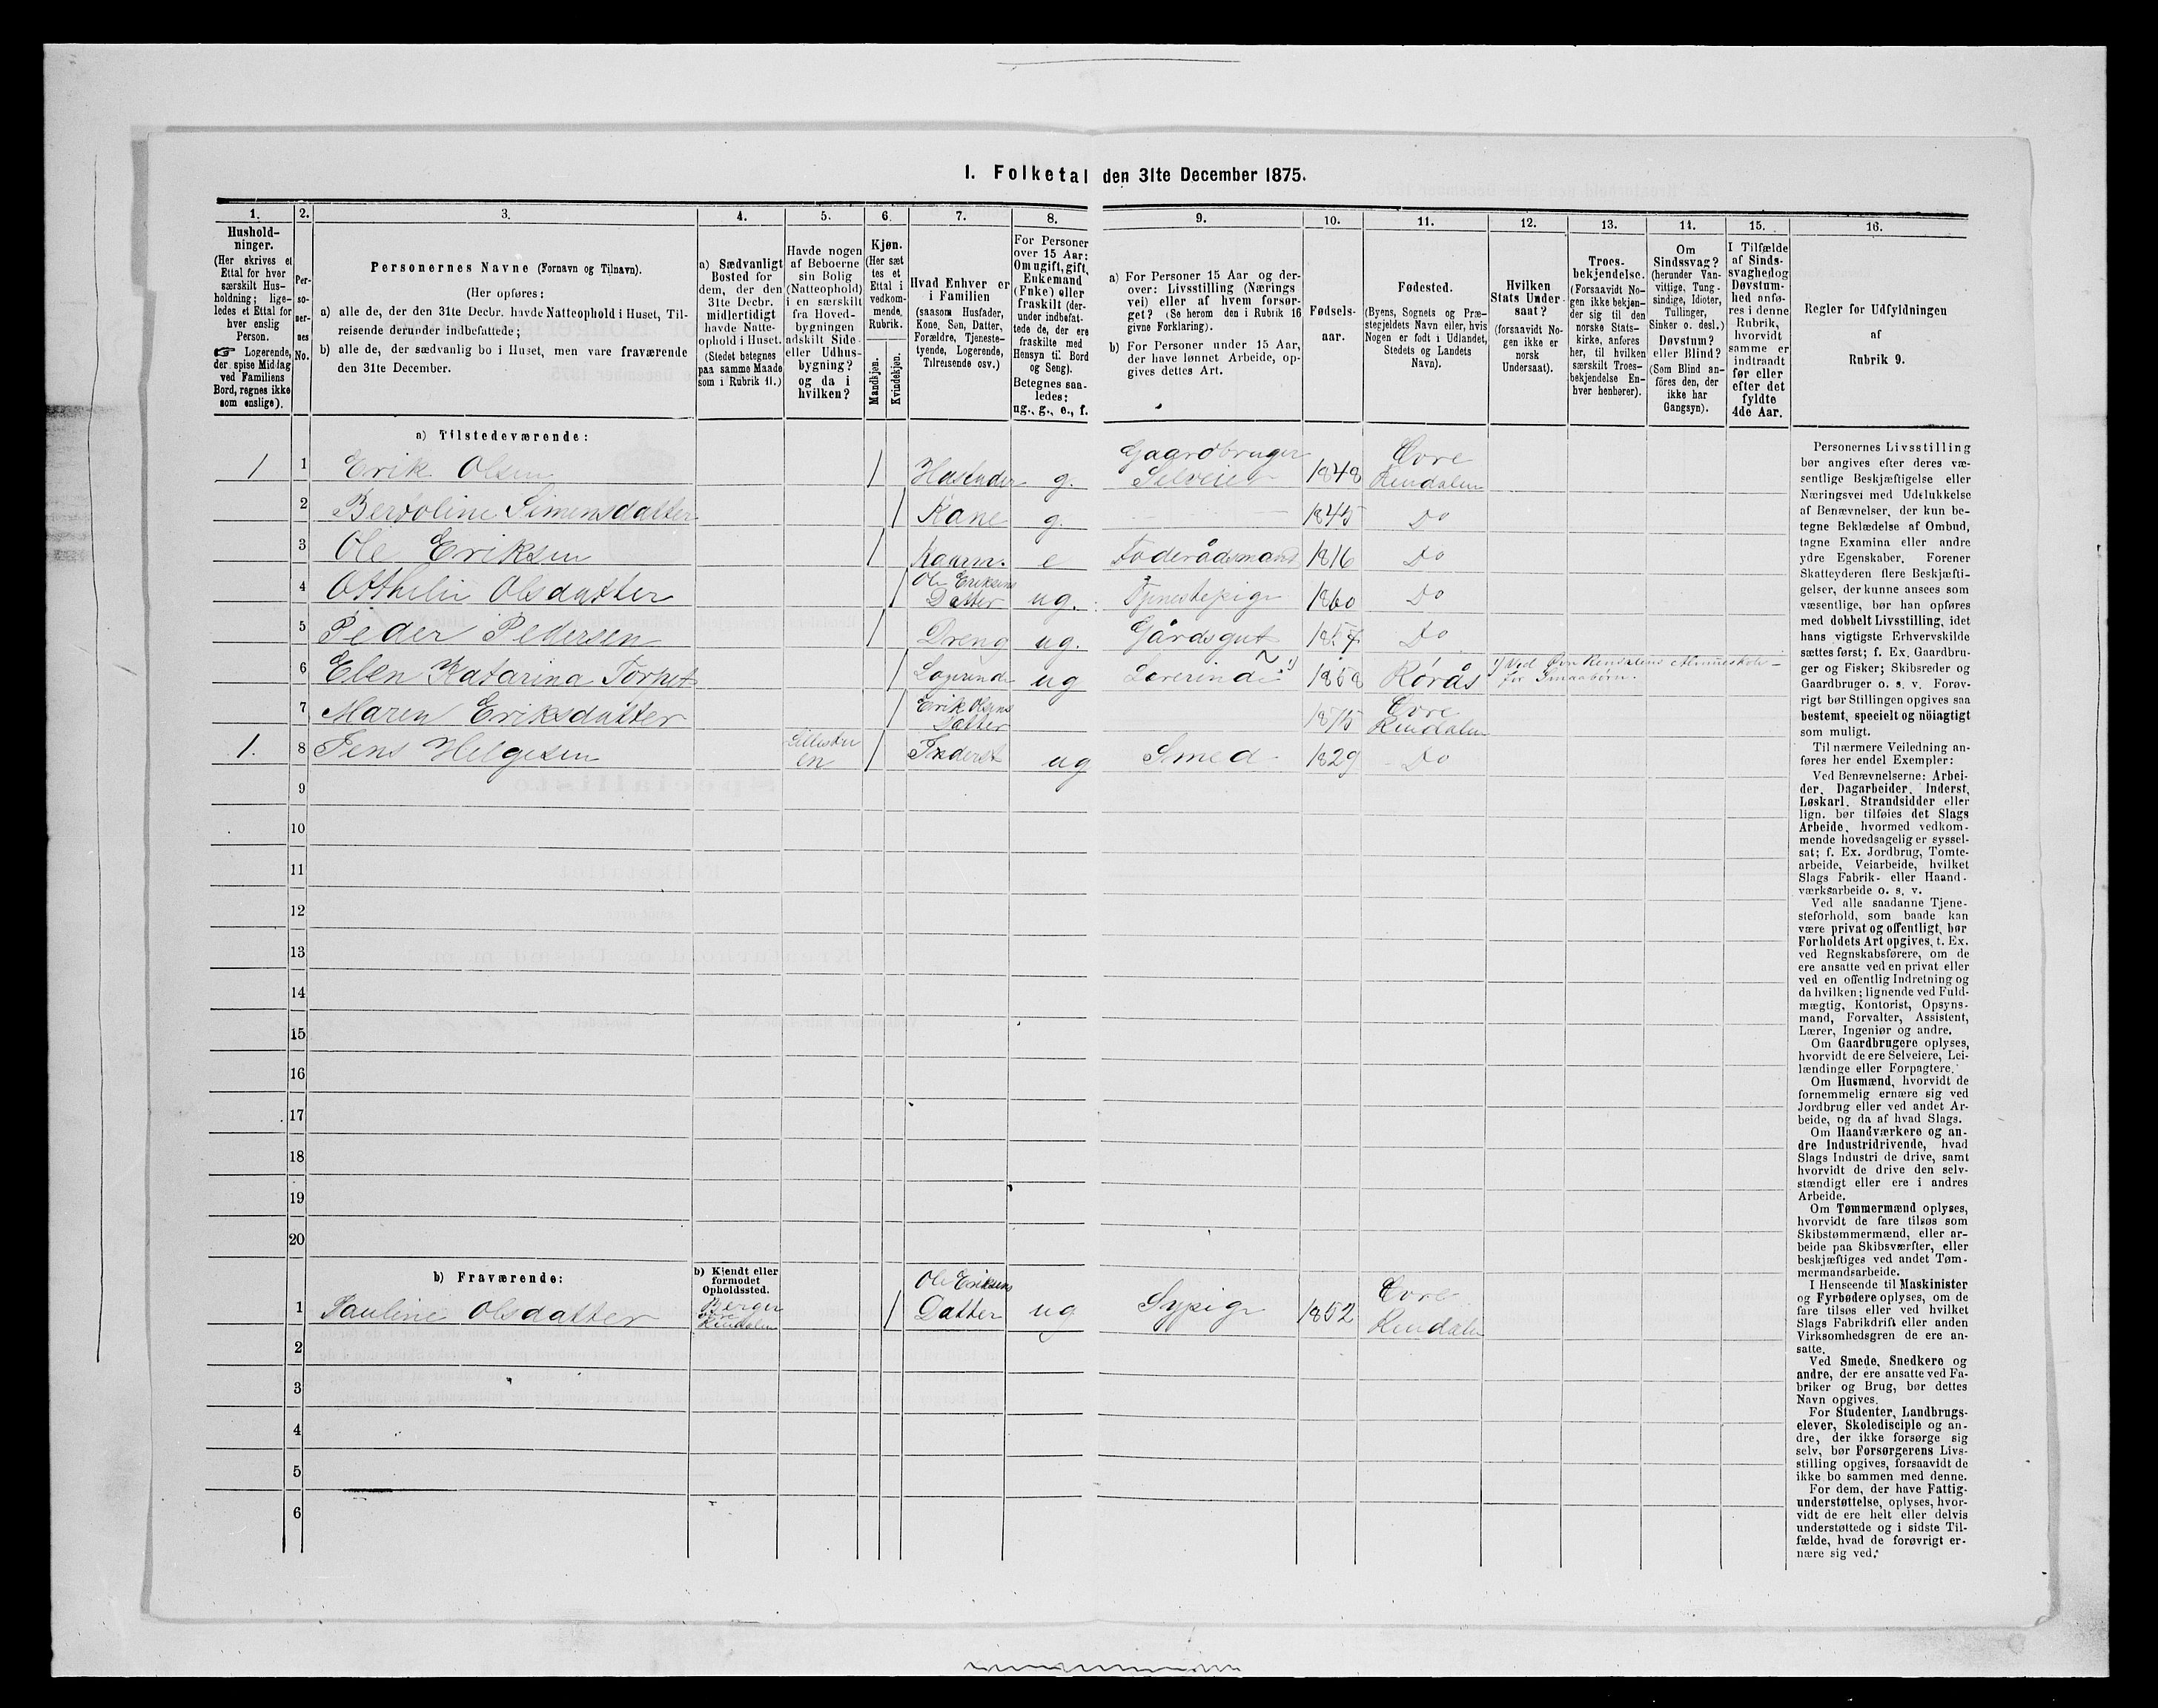 I. Folketal den 31te December 1875.
1. 2. 3. 4. 5. 6. 7. 8. 9. 10. 11. 12. 13. 14. 15. 16.
Hushold-
ninger.
(Her skrives et
Ettal for hver
særskilt Hus-
holdning; lige-
ledes et Ettal for
hver enslig
Person.
☞ Logerende,
der spise Middag
ved Familiens
Bord, regnes ikke
som enslige).
Per-
so-
ner-
nes
No.
Personernes Navne (Fornavn og Tilnavn).
(Her opføres:
a) alle de, der den 31te Decbr. havde Natteophold i Huset, Til-
reisende derunder indbefattede;
b) alle de, der sædvanlig bo i Huset, men vare fraværende
den 31te December.
a) Sædvanligt
Bosted for
dem, der den
31te Decbr.
midlertidigt
havde Natte-
ophold i Huset.
(Stedet betegnes
paa samme Maade
som i Rubrik 11.)
Havde nogen
af Beboerne
sin Bolig
(Natteophold)
i en særskilt
fra Hoved-
bygningen
adskilt Side-
eller Udhus-
bygning?
og da i
hvilken?
Kjøn.
(Her sæt
tes et
Ettal i
vedkom-
mende
Rubrik.
Mandkjøn.
Kvindekjøn.
Hvad Enhver er
i Familien
(saasom Husfader,
Kone, Søn, Datter,
Forældre, Tjeneste-
tyende, Logerende,
Tilreisende osv.)
For Personer
over 15 Aar:
Om ugift, gift,
Enkemand
(Enke) eller
fraskilt (der-
under indbefat-
tede de, der ere
fraskilte med
Hensyn til Bord
og Seng).
Betegnes saa-
ledes:
ug., g., e., f.
a) For Personer 15 Aar og der-
over: Livsstilling (Nærings
vei) eller af hvem forsør-
get? (Se herom den i Rubrik 16
givne Forklaring).
b) For Personer under 15 Aar,
der have lønnet Arbeide, op-
gives dettes Art.
Fødsels-
aar.
Fødested.
(Byens, Sognets og Præ-
stegjeldets Navn eller, hvis
Nogen er født i Udlandet,
Stedets og Landets
Navn).
Hvilken
Stats Under-
saat?
(forsaavidt No-
gen ikke er
norsk
Undersaat).
Troes-
bekjendelse.
(Forsaavidt No-
gen ikke bekjen-
der sig til den
norske Stats-
kirke, anføres
her, til hvilken
særskilt Troes-
bekjendelse En-
hver henhører).
Om
Sindssvag?
(herunder Van-
vittige, Tung-
sindige, Idioter,
Tullinger,
Sinker o. desl.)
Døvstum?
eller Blind?
(Som Blind an-
føres den, der
ikke har
Gangsyn).
I Tilfælde
af Sinds-
svaghed og
Døvstum-
hed anfø-
res i denne
Rubrik,
hvorvidt
samme er
indtraadt
før eller
efter det
fyldte
4de Aar.
Regler for Udfyldningen
af
Rubrik 9.
a) Tilstedeværende:
1 1 Erik Olsen 1 Husfader g. Gaardbruger Selveier 1848 Øvre Rendalen
2 Bertoline Simensdatter 1 Kone g. 1845 Do
3 Ole Eriksen 1 e Foderådsmand 1816 Do
4 Othelie Olsdatter 1 Ole Eriksens Datter ug. Tjenestepige 1860 Do
5 Peder Pedersen 1 Dreng ug. Gårdsgut Do
6 Elen Katarina 1 Logerende ug Lærerinde 1) 1858 Rørås 1) Ved Øvre Rendalens Almueskole for Smaabørn.
7 Maren Eriksdatter 1 Erik Olsens Datter 1875 Øvre Rendalen
1. 8 Jens Helgesen 1 Inderst ug Smed 1829 Do
9
10
11
12
13
14
15
16
17
18
19
20
b) Fraværende:
b) Kjendt eller
formodet
Opholdssted.
1 Pauline Olsdatter Berger Øvre Rendalen 1 Ole Eriksens Datter ug Sypige 1852 Øvre Rendalen
2
3
4
5
6
Personernes Livsstilling
bør angives efter deres væ-
sentlige Beskjæftigelse eller
Næringsvei med Udelukkelse
af Benævnelser, der kun be-
tegne Beklædelse af Ombud,
tagne Examina eller andre
ydre Egenskaber. Forener
Skatteyderen flere Beskjæfti-
gelser, der kunne ansees som
væsentlige, bør han opføres
med dobbelt Livsstilling, idet
hans vigtigste Erhvervskilde
sættes først; f. Ex. Gaardbru-
ger og Fisker; Skibsreder og
Gaardbruger o. s. v. Forøv-
rigt bør Stillingen opgives saa
bestemt, specielt og nöiagtigt
som muligt.
Til nærmere Veiledning an-
føres her endel Exempler:
Ved Benævnelserne: Arbei-
der, Dagarbeider, Inderst,
Løskarl, Strandsidder eller
lign. bør tilføies det Slags
Arbeide, hvormed vedkom-
mende hovedsagelig er syssel-
sat; f. Ex. Jordbrug, Tomte-
arbeide, Veiarbeide, hvilket
Slags Fabrik- eller Haand-
værksarbeide o. s. v.
Ved alle saadanne Tjene-
steforhold, som baade kan
være privat og offentligt, bør
Forholdets Art opgives, t. Ex.
ved Regnskabsførere, om de
ere ansatte ved en privat eller
ved en offentlig Indretning og
da hvilken; lignende ved Fuld-
mægtig, Kontorist, Opsyns-
mand, Forvalter, Assistent,
Lærer, Ingeniør og andre.
Om Gaardbrugere oplyses,
hvorvidt de ere Selveiere, Lei-
lændinge eller Forpagtere.
Om Husmænd, hvorvidt de
fornemmelig ernære sig ved
Jordbrug eller ved andet Ar-
beide, og da af hvad Slags.
Om Haandværkere og an-
dre Industridrivende, hvad
Slags Industri de drive, samt
hvorvidt de drive den selv-
stændigt eller ere i andres
Arbeide.
Om Tømmermænd oplyses,
hvorvidt de fare tilsøs som
Skibstømmermænd, eller ar-
beide paa Skibsværfter, eller
beskjæftiges ved andet Tøm-
mermandsarbeide.
I Henseende til Maskinister
og Fyrbødere oplyses, om de
fare tilsøs eller ved hvilket
Slags Fabrikdrift eller anden
Virksomhedsgren de ere an-
satte.
Ved Smede, Snedkere og
andre, der ere ansatte ved Fa-
briker og Brug, bør dettes
Navn opgives.
For Studenter, Landbrugs-
elever, Skoledisciple og an-
dre, der ikke forsørge sig
selv, bør Forsørgerens Livs-
stilling opgives, forsaavidt de
ikke bo sammen med denne.
For dem, der have Fattig-
understøttelse, oplyses, hvor-
vidt de ere helt eller delvis
understøttede og i sidste Til-
fælde, hvad de forøvrigt er-
nære sig ved.